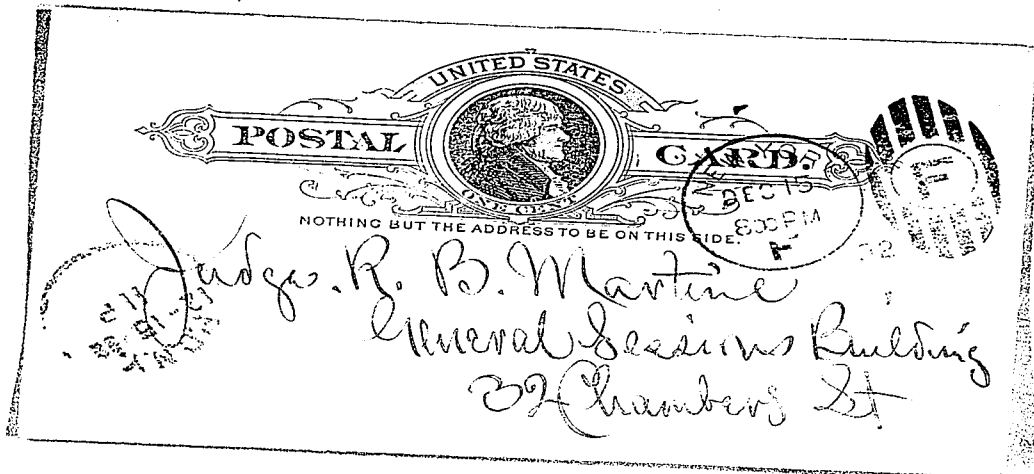 UNITED STATES
POSTAL CARD.
ONE CENT
NOTHING BUT THE ADDRESS TO BE ON THIS SIDE.
NEW YORK
DEC 15
800 PM
Judge. R. B. Martine
General Sessions Building
32 Chambers St